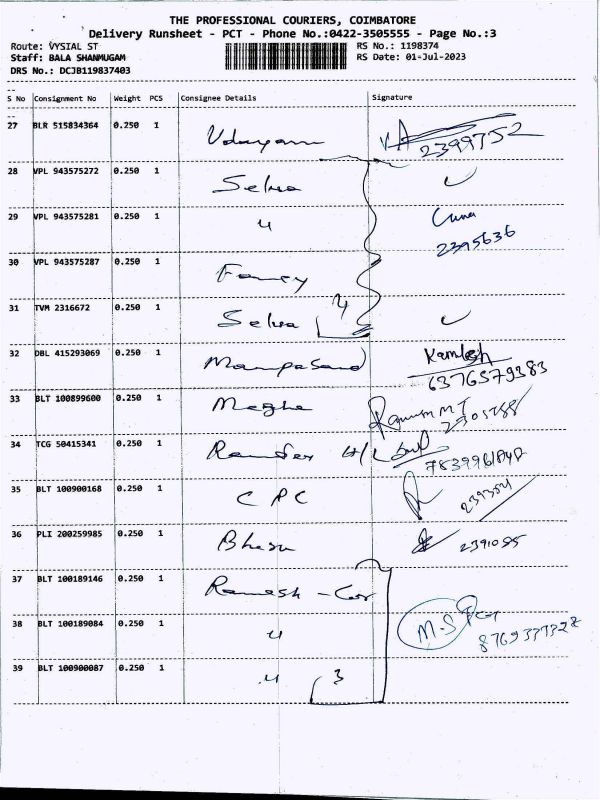 THE PROFESSIONAL COURIERS, COIMBATORE
Delivery Runsheet - PCT - Phone No.:0422-3505555 - Page No.:3
Route: VYSIAL ST
RS No.: 1198374
Staff: BALA SHANMUGAM
RS Date: 01-Jul-2023
DRS No.: DCJB119837403
S No Consignment No Weight PCS Consignee Details Signature
27 BLR 515834364 0.250 1 Udayam 2399752
28 VPL 943575272 0.250 1 Selva ✓
29 VPL 943575281 0.250 1 〃
2395636
30 VPL 943575287 0.250 1 Fancy
4
31 TVM 2316672 0.250 1 Selva ✓
32 DBL 415293069 0.250 1 Mampasand Kamlesh
6376579383
33 BLT 100899600 0.250 1 Megha
34 TCG 50415341 0.250 1
35 BLT 100900168 0.250 1 CPC
36 PLI 200259985 0.250 1 2391055
37 BLT 100189146 0.250 1 Ramesh - Car
38 BLT 100189084 0.250 1 〃 M.S
39 BLT 100900087 0.250 1 〃 3